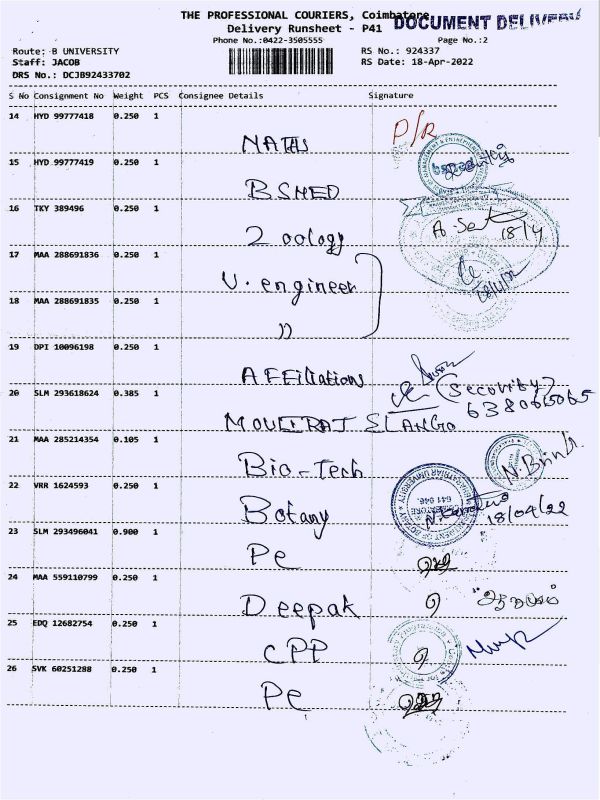 THE PROFESSIONAL COURIERS, Coimbatore
DOCUMENT DELIVERY
Delivery Runsheet - P41
Phone No.:0422-3505555
Page No.:2
Route: B UNIVERSITY
RS No.: 924337
Staff: JACOB
RS Date: 18-Apr-2022
DRS No.: DCJB92433702
S No Consignment No Weight PCS Consignee Details Signature
14 HYD 99777418 0.250 1
P/R
MATHS
15 HYD 99777419 0.250 1
BSMED
16 TKY 389496 0.250 1
Zoology
18/4
17 MAA 288691836 0.250 1
U. engineer
18 MAA 288691835 0.250 1
"
19 DPI 10096198 0.250 1
AFFiliations
20 SLM 293618624 0.385 1
(Security)
21 MAA 285214354 0.105 1
Bio-Tech
N. Brindh
22 VRR 1624593 0.250 1
641 046.
Botany
18/04/22
23 SLM 293496041 0.900 1
PC
24 MAA 559110799 0.250 1
Deepak
25 EDQ 12682754 0.250 1
CPP
26 SVK 60251288 0.250 1
PC